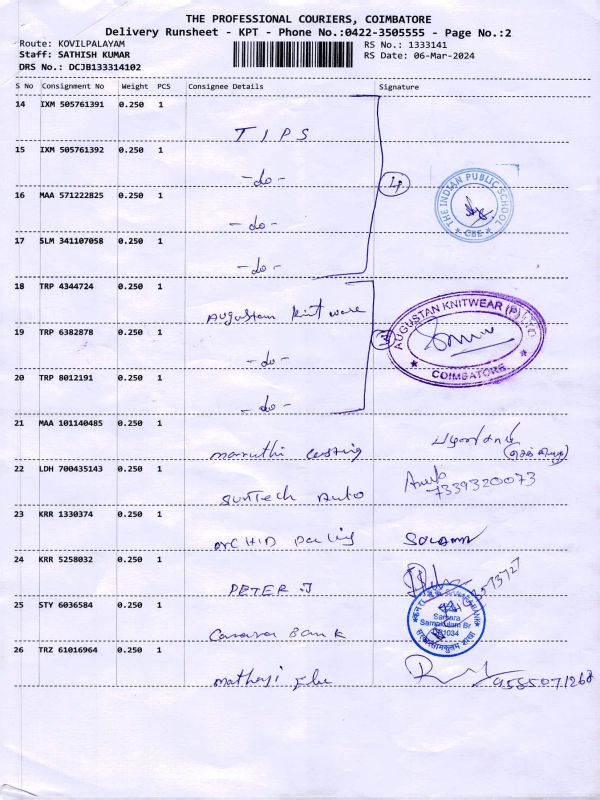 THE PROFESSIONAL COURIERS, COIMBATORE
Delivery Runsheet - KPT - Phone No.:0422-3505555 - Page No.:2
Route: KOVILPALAYAM
Staff: SATHISH KUMAR
DRS No.: DCJB133314102
RS No.: 1333141
RS Date: 06-Mar-2024
S No Consignment No Weight PCS Consignee Details Signature
14 IXM 505761391 0.250 1 TIPS
15 IXM 505761392 0.250 1 -do-
16 MAA 571222825 0.250 1 -do-
17 SLM 341107058 0.250 1 -do-
4
THE INDIAN PUBLIC SCHOOL
CBE
18 TRP 4344724 0.250 1 Augustan knit ware
19 TRP 6382878 0.250 1 -do-
20 TRP 8012191 0.250 1 -do-
AUGUSTAN KNITWEAR (P) LTD
COIMBATORE
21 MAA 101140485 0.250 1 maruthi casting
22 LDH 700435143 0.250 1 SunTech Auto 7339320073
23 KRR 1330374 0.250 1 ORCHID
24 KRR 5258032 0.250 1 PETER .J
25 STY 6036584 0.250 1 Canara Bank
CANARA BANK
26 TRZ 61016964 0.250 1 mathaji 9585071268